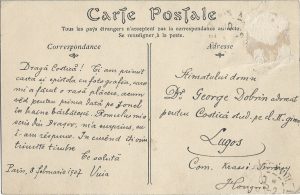 Carte Postale
Tous les pays étrangers n'acceptent pas la correspondance au recto
Se renseigner à la poste.
Correspondance
Adresse
Dragă Codică! Ți am primit
carta și epistola cu fotografia, care
mi a făcut o rasă plăcere, acum
văd pentru prima dată pe Ionel
în haine bărbătești. Romulus mi a
scris din Dragov, n'a respuns, eu
i am răspuns. În curând îți voi
trimite
Te salută
Vuia
Paris, 8 februarie 1907
Stimatului domn
Drs George Dobrin advocat
pentru Codică stud. pe cl. I. gimn
Lugos
Com. Krassó Szörény
Hongrie